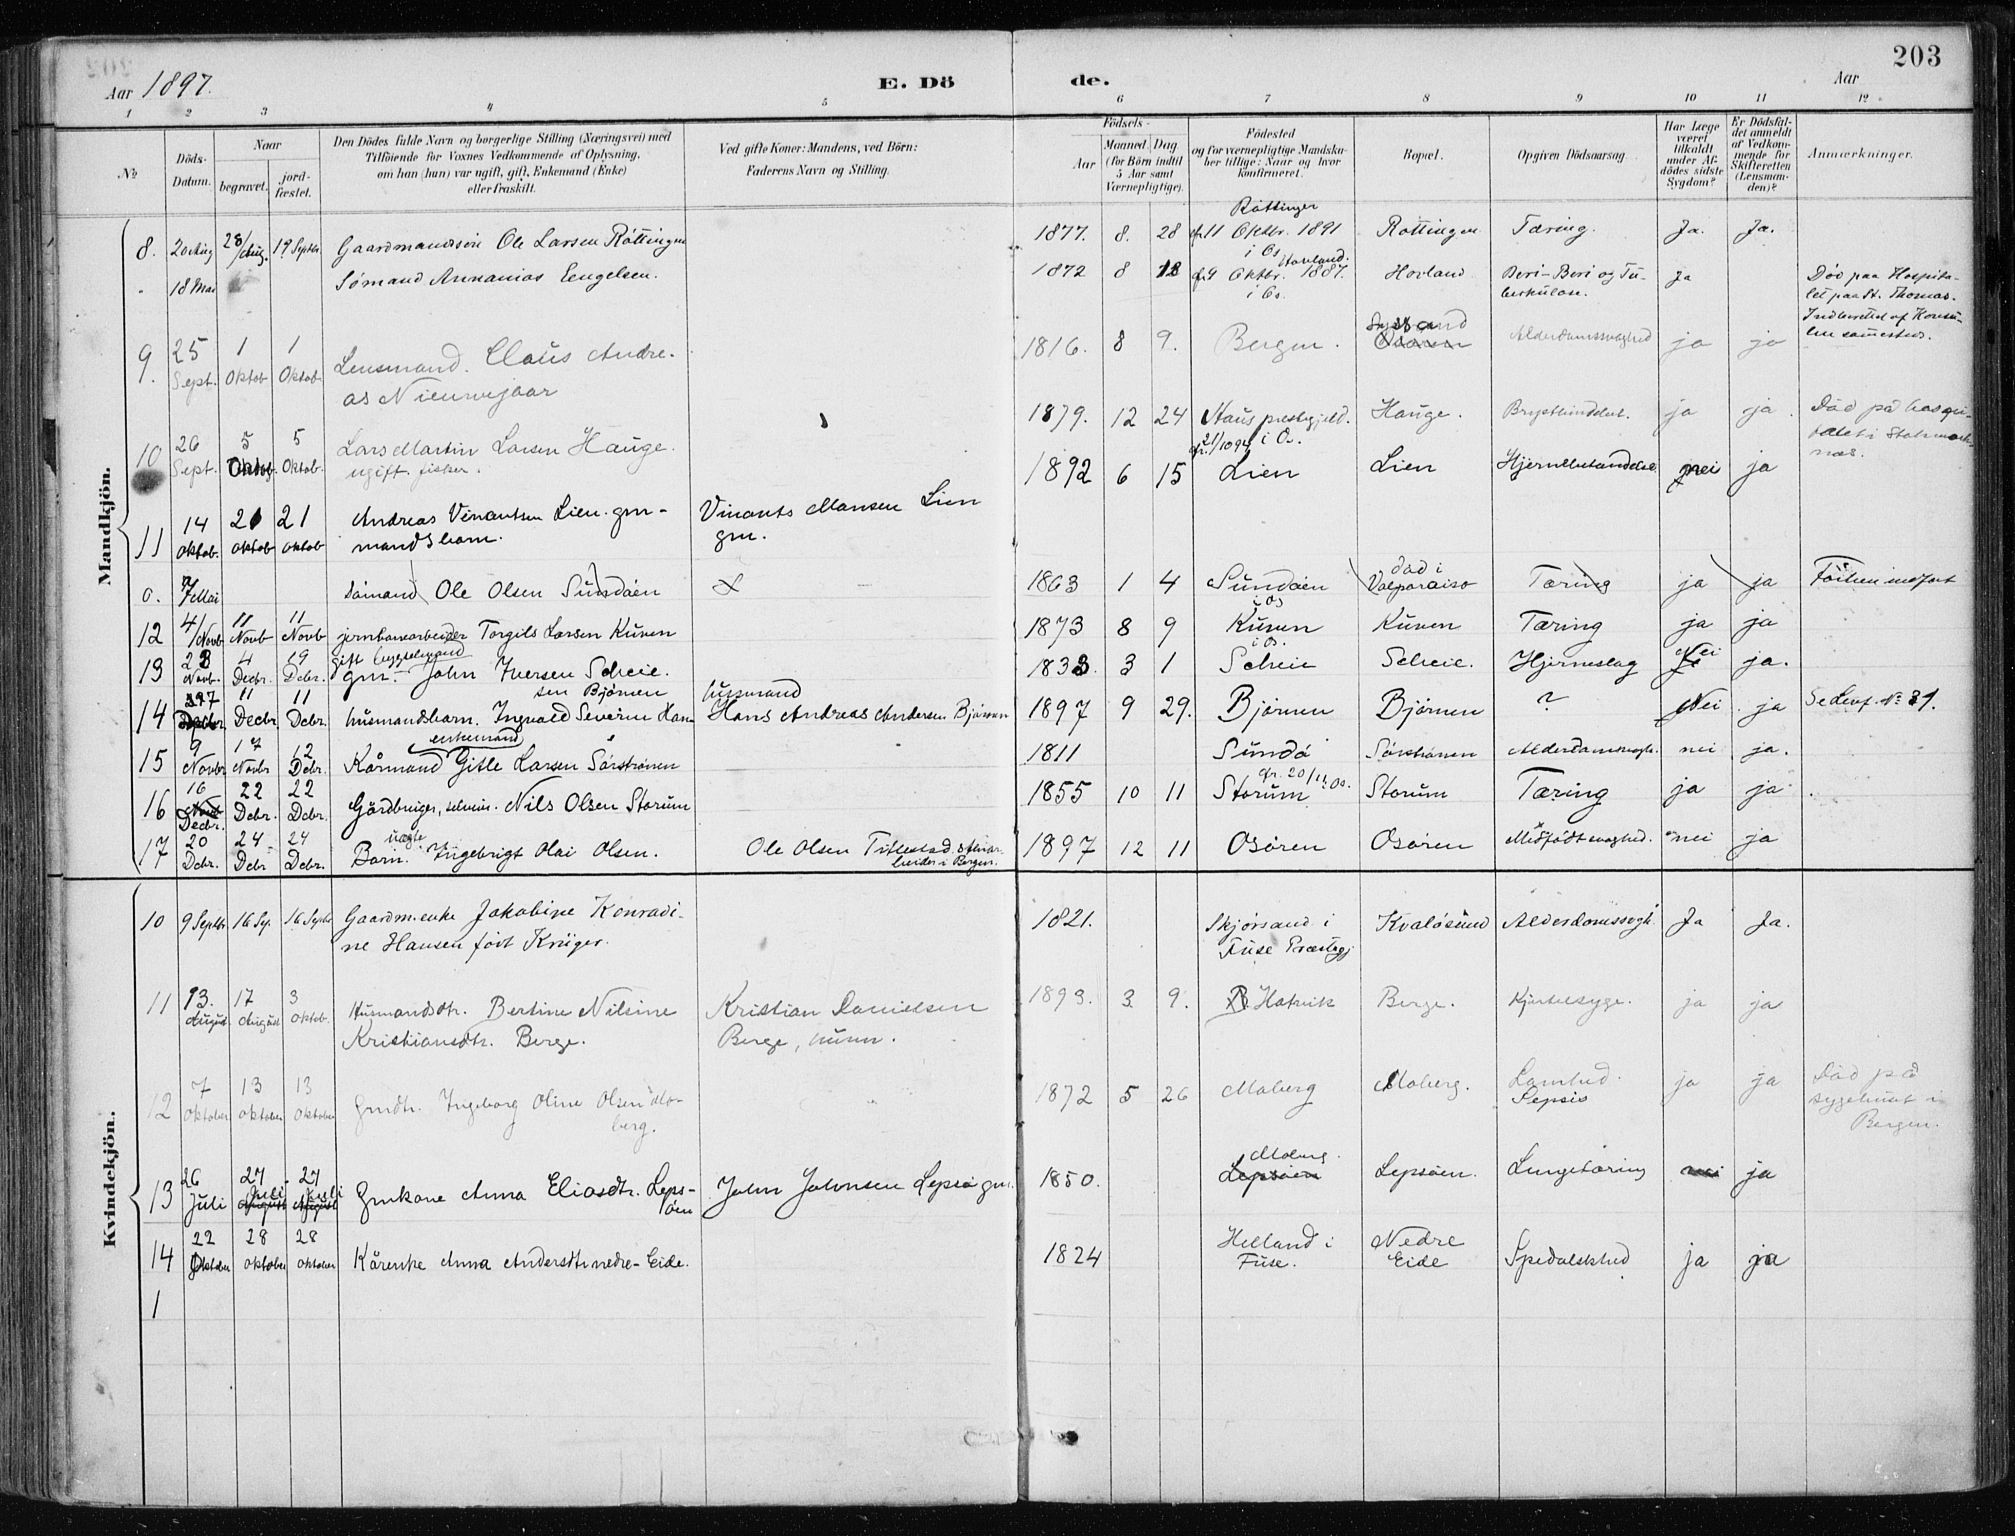 203
Aar 1897.
E. Dö de.
Aar
1 2 3 4 5 6 7 8 9 10 11 12
№
Döds-Datum.
Naar
begravet.
jord-fæstet.
Den Dödes fulde Navn og borgerlige Stilling (Næringsvei) med
Tilföiende for Voxnes Vedkommende af Oplysning,
om han (hun) var ugift, gift, Enkemand (Enke)
eller fraskilt.
Ved gifte Koner: Mandens, ved Börn:
Faderens Navn og Stilling.
Födsels-
Aar
Maaned Dag
(for Börn indtil
5 Aar samt
Værnepligtige).
Födested
og for værnepligtige Mandska-
ber tillige: Naar og hvor
konfirmeret.
Bopæl.
Opgiven Dödsaarsag.
Har Læge
været
tilkaldt
under Af-
dødes sidste
Sygdom?
Er Dödsfal-
det anmeldt
af Vedkom-
mende for
Skifteretten
(Lensman-
den)?
Anmærkninger.
Mandkjön.
8. 20 Aug 28/Aug. 19 Septbr. Gaardmandssön Ole Larsen Röttingen 1877. 8. 28 Röttingen cf. 11 Oktbr. 1891 i Os Rottingen Tæring. Ja. Ja.
18 Mai Sömand Annanias Engelsen. 1872 8 18 Hovland. cf. 9 Oktbr. 1887. i Os. Hovland Beri-Beri og Tu-
berkulose. Ja Död paa Hospita-
let paa St. Thomas.
Indberettet af Konsu-
len sammesteds.
9. 25 Sept. 1 Oktob 1 Oktob. Lensmand. Claus Andre-
as Nieuwejaar 1816. 8 9. Bergen. Osøren Alderdomssvaghed ja ja
10 26 Sept. 5 Oktob. 5 Oktob. Lars Martin Larsen Hauge.
ugift fisker. 1879. 12 24 Haus prestegjeld. i Os. Hauge. ja ja. Död på hospi-
talet i
11 14 oktob. 21 oktob 21 oktob Andreas Vinantsen Lien. gm-
mandsbarn. Vinants Monsen Lien
gm. 1892 6 15 Lien Lien Hjernebetændelse nei ja
0. 7 Mai Sömand Ole Olsen Sundöen 1863 1 4 Sundöen i Os död i Valparaiso Tæring ja ja
12 4/Novb 11 Novb 11 Novb jernbanearbeider Torgils Larsen Kuven 1873 8 9 Kuven i Os. Kuven Tæring ja ja
13 28 Novb. 4 Decbr. 19 Debr. gift
gm. John Iversen Scheie. 1833. 3 1 Scheie Scheie. Hjerneslag Nei ja.
14 27 11 Decbr 11 Debr. husmandsbarn. Ingvald Severin Han-
sen Björnen husmand
Hans Andreas Andersen Björnen 1897 9 29. Björnen Björnen ? Nei ja
15 9 Novbr 17 Novbr 12 Debr. enkemand
Kårmand Gitle Larsen Sörströnen 1811 Sundö Sörströnen nei ja.
16 16 Decbr. 22 Debr. 22 Debr. Nils Olsen Storum 1855 10 11 Storum Storum Tæring ja ja
17 20 Debr. 24 Debr 24 Debr. uægte
Barn. Ingebrigt Olai Olsen. Ole Olsen Tittlestad
i Bergen. 1897 12 11 Osören Osören Medfödt svaghed. nei ja
Kvindekjön.
10 9 Septbr 16 Sep. 16 Septbr Gaardm.enke Jakobine Konradi-
ne Hansen fört Krüger. 1821. Skjörsand i
Fuse Præstegj. Kvalösund Alderdomssvagh. Ja Ja.
11 13. August 17 August 3 Oktob. Husmandsdtr. Bertine Nilsine
Kristiansdtr. Berge. Kristian Danielsen
Berge, husm. 1893. 3. 9. Hatvik Berge. Kjertelsyge. ja ja
12 7 Oktober 13 Oktober 13 Oktober gmdtr. Ingeborg Oline Olsen Mo-
berg. 1872 5 26 Moberg Moberg. Sepsis ja ja Död på
sygehuset i
Bergen.
13 26 Juli 27 Juli 27 Juli Gmkone Anna Eliasdtr. Leps-
öen John Johnsen Lepsö gm. 1850. Moberg Lepsöen. Lungetæring ja
14 22 Oktober 28 oktober 28 oktober Kårenke Anna Andersdtr nedre-Eide. 1824 Helland i
Fuse. Nedre
Eide Spedalskhed ja ja
1